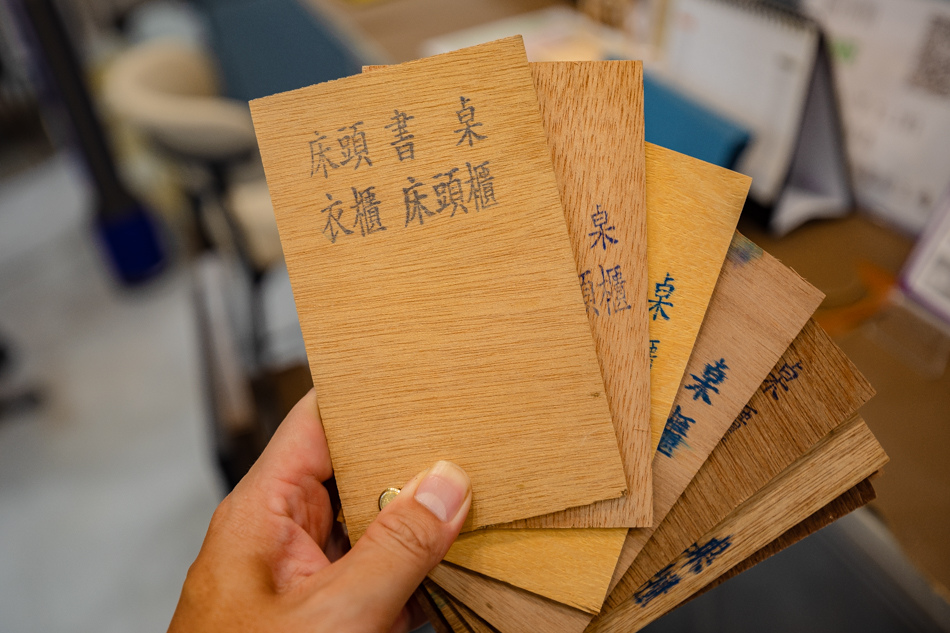 床頭 書 桌
衣櫃 床頭櫃
桌
頭櫃
桌
桌
櫃
桌